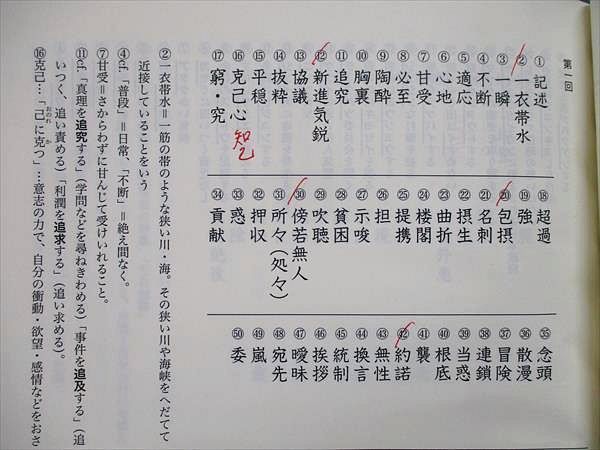 第一回
①記述
②一衣帯水
③一瞬
④不断
⑤適応
⑥心地
⑦甘受
⑧必至
⑨陶酔
⑩胸裏
⑪追究
⑫新進気鋭
⑬協議
⑭抜粋
⑮平穏
⑯克己心
知己
⑰窮・究
⑱超過
⑲強
⑳包摂
㉑名刺
㉒摂生
㉓曲折
㉔楼閣
㉕提携
㉖担
㉗示唆
㉘貧困
㉙吹聴
㉚傍若無人
㉛所々(処々)
㉜押収
㉝惑
㉞貢献
㉟念頭
㊱散漫
㊲冒険
㊳連鎖
㊴当惑
㊵根底
㊶襲
㊷約諾
㊸無性
㊹換言
㊺統制
㊻挨拶
㊼曖昧
㊽宛先
㊾嵐
㊿委
②一衣帯水=一筋の帯のような狭い川・海。その狭い川や海峡をへだてて
近接していることをいう
④cf.「普段」=日常、「不断」=絶え間なく。
⑦甘受=さからわずに甘んじて受けいれること。
⑪cf.「真理を追究する」(学問などを尋ねきわめる)「事件を追及する」(追
いつく、追い責める)「利潤を追求する」(追い求める)。
⑯克己…「己に克つ」…意志の力で、自分の衝動・欲望・感情などをおさ